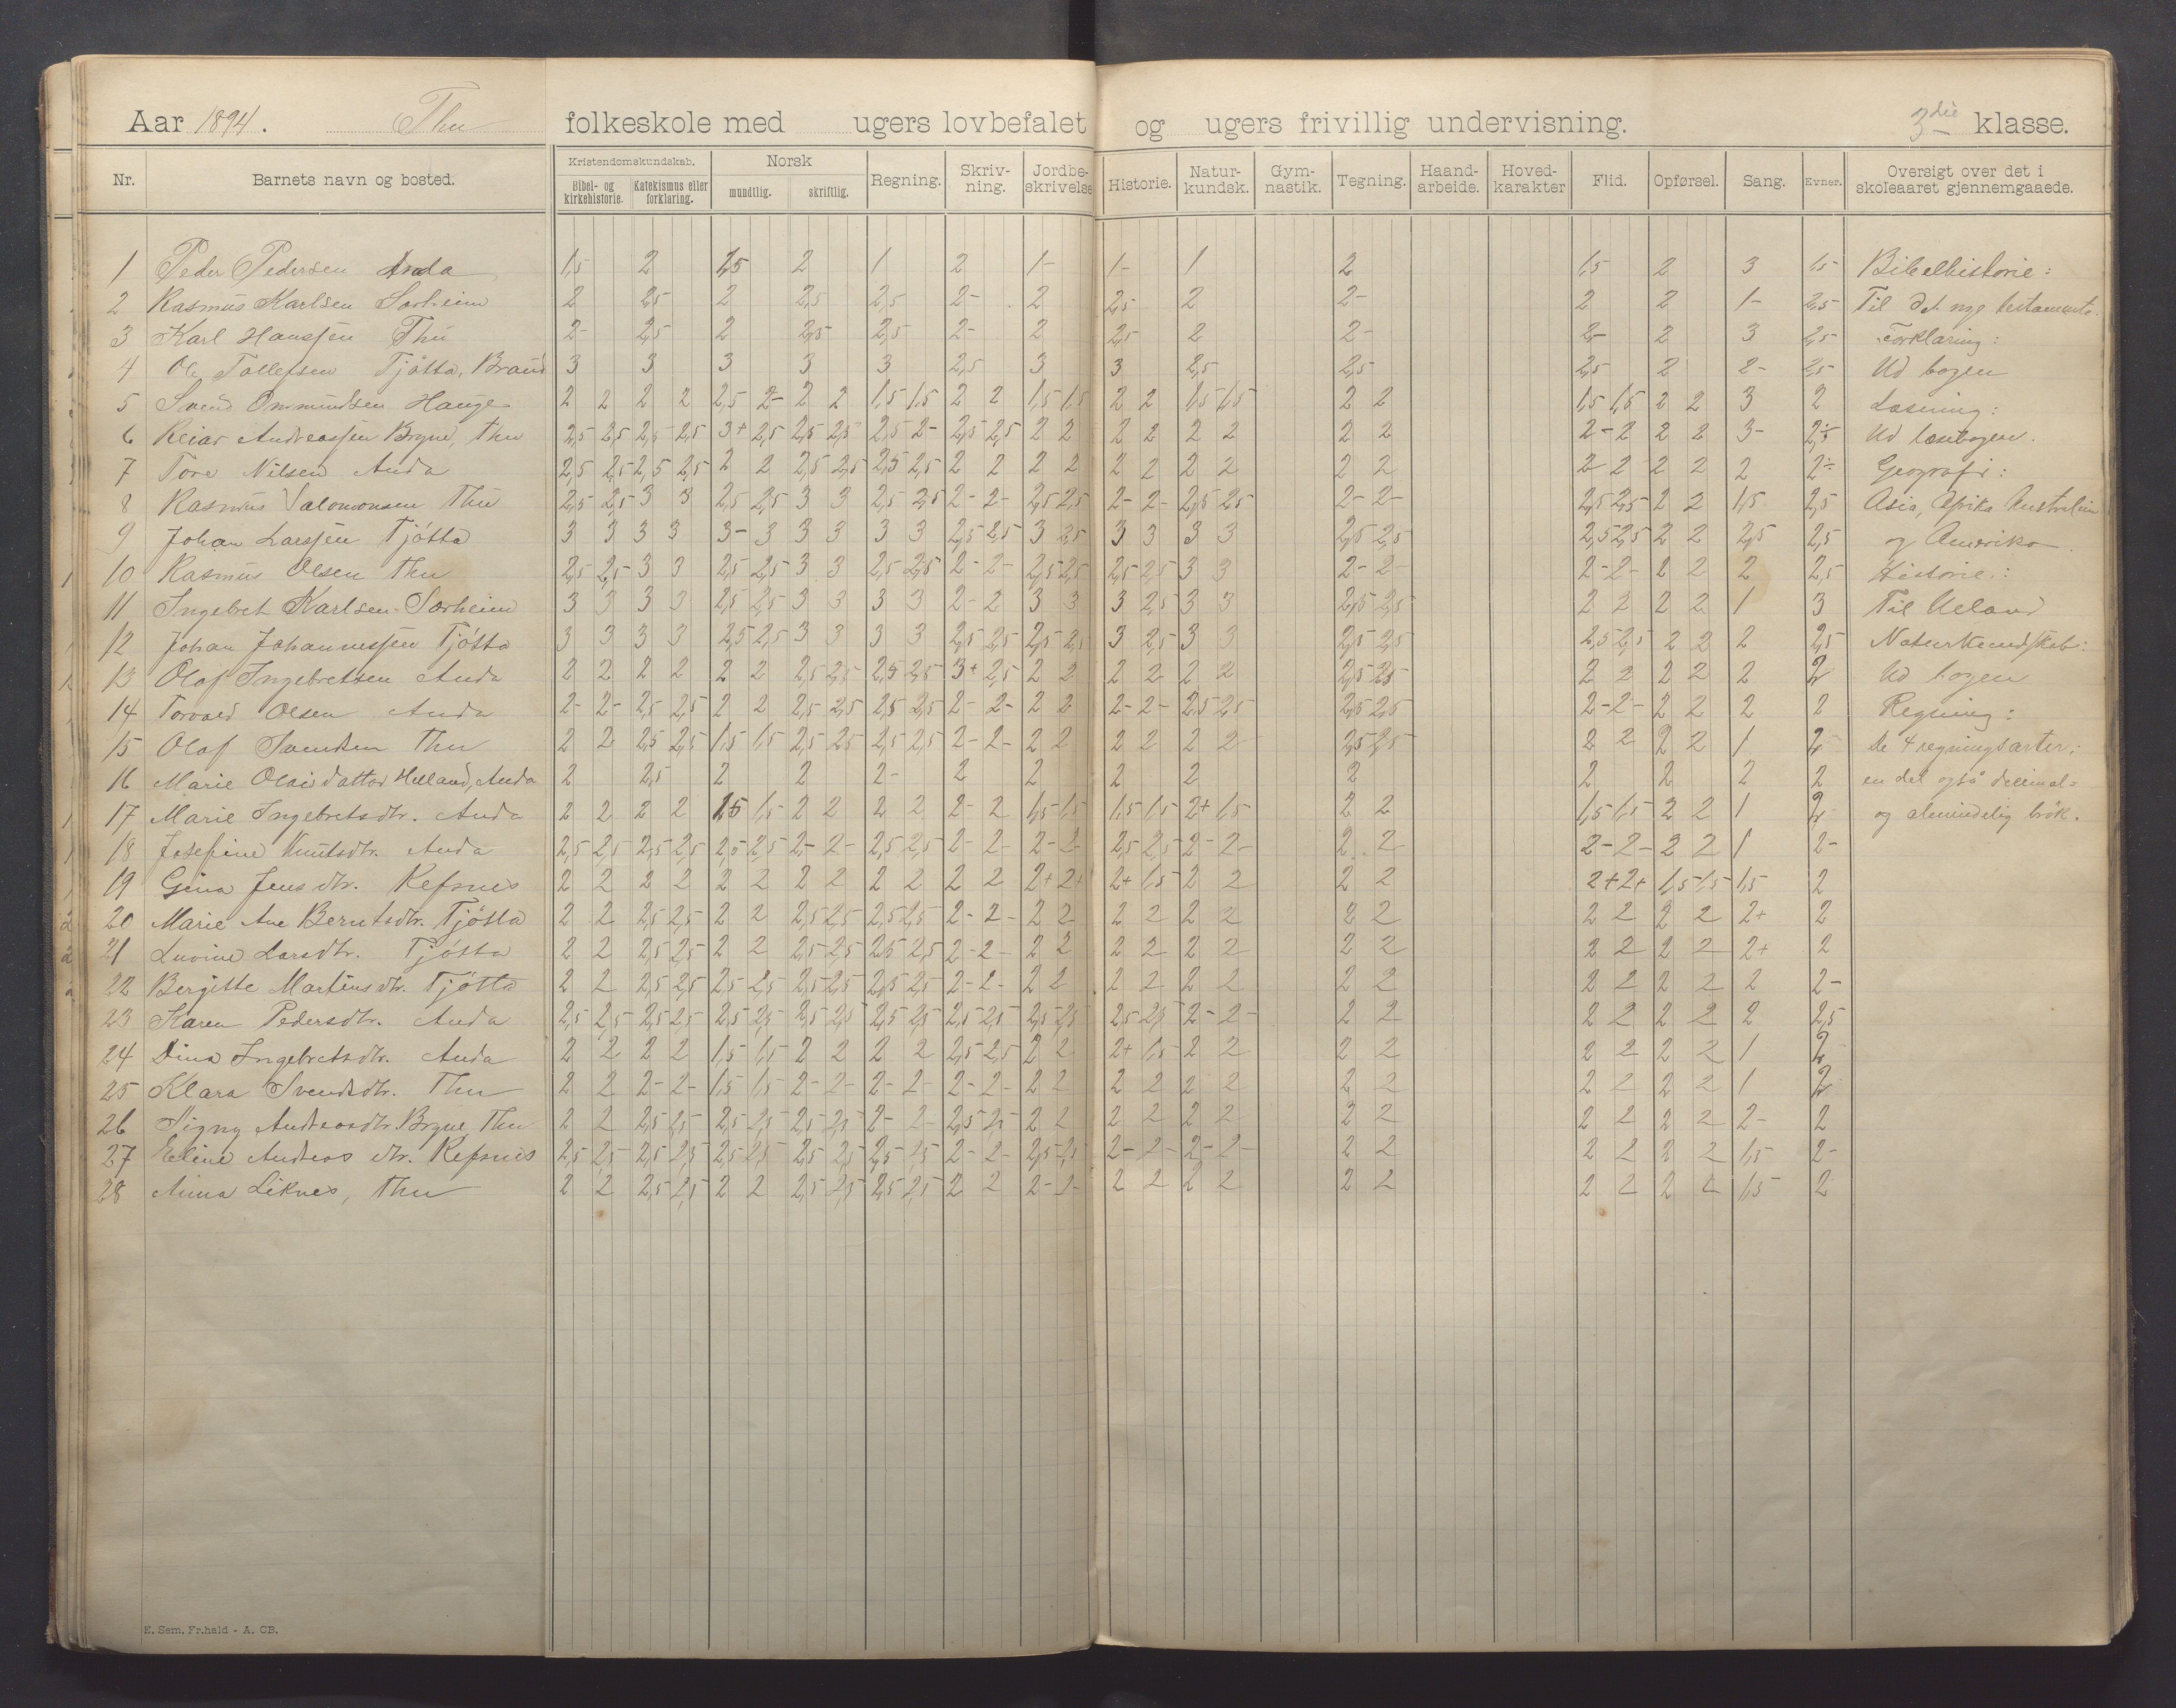 Aar 1894. Thu folkeskole med ugers lovbefalet og ugers frivillig undervisning. 3die klasse.
Nr. Barnets navn og bosted. Kristendomskundskab. Bibel- og kirkehistorie. Katekismus eller forklaring. Norsk mundtlig. skriftlig. Regning. Skriv-ning. Jordbe-skrivelse Historie. Natur-kundsk. Gym-nastik. Tegning. Haand-arbeide. Hoved-karakter Flid. Opførsel. Sang. Evner. Oversigt over det i skoleaaret gjennemgaaede.
1 Peder Pedersen Anda 1,5 2 1,5 2 1 2 1- 1- 1 2 1,5 2 3 1,5 Bibelhistorie:
2 Rasmus Karlsen Sørheim 2 2,5 2 2,5 2,5 2- 2 2,5 2 2- 2 2 1- 2,5 Til det nye testamente.
3 Karl Hanssen Thu 2- 2,5 2 2,5 2,5 2- 2 2,5 2 2- 2- 2 3 2,5 Forklaring:
4 Ole Tollefsen Tjøtta, Braud 3 3 3 3 3 2,5 3 3 2,5 2,5 2,5 2 2- 2,5 Ud bogen
5 Svend Ommundsen Hauge 2 2 2 2 2,5 2- 2 2 1,5 1,5 2 2 1,5 1,5 2 2 1,5 1,5 2 2 1,5 1,5 2 2 3 2 Læsning:
6 Reiar Andreassen Bryne, Thu 2,5 2,5 2,5 2,5 3+ 2,5 2,5 2,5 2,5 2- 2,5 2,5 2 2 2 2 2 2 2 2 2- 2 2 2 3- 2,5 Ud læsebogen.
7 Tore Nilsen Anda 2,5 2,5 2,5 2,5 2 2 2,5 2,5 2,5 2,5 2 2 2 2 2 2 2 2 2 2 2 2 2 2 2 2÷ Geografi:
8 Rasmus Salomonsen Thu 2,5 2,5 3 3 2,5 2,5 3 3 2,5 2,5 2- 2- 2,5 2,5 2- 2- 2,5 2,5 2- 2- 2,5 2,5 2 2 1,5 2,5 Asia, Afrika Australien
9 Johan Larssen Tjøtta 3 3 3 3 3- 3 3 3 3 3 2,5 2,5 3 2,5 3 3 3 3 2,5 2,5 2,5 2,5 2 2 2,5 2,5 og Amerika.
10 Rasmus Olsen Thu 2,5 2,5 3 3 2,5 2,5 3 3 2,5 2,5 2- 2- 2,5 2,5 2,5 2,5 3 3 2- 2- 2- 2- 2 2 2 2,5 Historie:
11 Ingebret Karlsen Sørheim 3 3 3 3 2,5 2,5 3 3 3 3 2- 2 3 3 3 2,5 3 3 2,5 2,5 2 2 2 2 1 3 Til Ueland
12 Johan Johannessen Tjøtta 3 3 3 3 2,5 2,5 3 3 3 3 2,5 2,5 2,5 2,5 3 2,5 3 3 2,5 2,5 2,5 2,5 2 2 2 2,5 Naturkundskab:
13 Olaf Ingebretsen Anda 2 2 2 2 2 2 2,5 2,5 2,5 2,5 3+ 2,5 2 2 2 2 2 2 2,5 2,5 2 2 2 2 2 2 Ud bogen
14 Torvald Olsen Anda 2- 2- 2,5 2,5 2 2 2,5 2,5 2,5 2,5 2- 2- 2 2 2- 2- 2,5 2,5 2,5 2,5 2- 2- 2 2 2 2 Regning:
15 Olaf Svendsen Thu 2 2 2,5 2,5 1,5 1,5 2,5 2,5 2,5 2,5 2- 2- 2 2 2 2 2 2 2,5 2,5 2 2 2 2 1 2 De 4 regningsarter,
16 Marie Olaisdatter Helland, Anda 2 2,5 2 2 2- 2 2 2 2 2 2 2 2 2 en del også decimal-
17 Marie Ingebretsdtr. Anda 2 2 2 2 1,5 1,5 2 2 2 2 2- 2 1,5 1,5 1,5 1,5 2+ 1,5 2 2 1,5 1,5 2 2 1 2 og almindelig brøk.
18 Josefine Knutsdtr. Anda 2,5 2,5 2,5 2,5 2,5 2,5 2- 2- 2,5 2,5 2- 2- 2- 2- 2,5 2,5 2- 2- 2 2 2- 2- 2 2 1 2-
19 Gina Jensdtr. Refsnes 2 2 2 2 2 2 2 2 2 2 2 2 2+ 2+ 2+ 1,5 2 2 2 2 2+ 2+ 1,5 1,5 1,5 2
20 Marie Ane Berntsdtr. Tjøtta 2 2 2,5 2,5 2 2 2,5 2,5 2,5 2,5 2- 2- 2 2 2 2 2 2 2 2 2 2 2 2 2+ 2
21 Lovine Larsdtr. Tjøtta 2 2 2,5 2,5 2 2 2,5 2,5 2,5 2,5 2- 2- 2 2 2 2 2 2 2 2 2 2 2 2 2+ 2
22 Bergitte Martinsdtr. Tjøtta 2 2 2,5 2,5 2,5 2,5 2,5 2,5 2,5 2,5 2- 2- 2 2 2 2 2 2 2 2 2 2 2 2 2 2-
23 Karen Pedersdtr. Anda 2,5 2,5 2,5 2,5 2,5 2,5 2,5 2,5 2,5 2,5 2,5 2,5 2,5 2,5 2,5 2,5 2- 2- 2 2 2 2 2 2 2 2,5
24 Dina Ingebretsdtr. Anda 2 2 2 2 1,5 1,5 2 2 2 2 2,5 2,5 2 2 2+ 1,5 2 2 2 2 2 2 2 2 1 2
25 Klara Svendsdtr. Thu 2 2 2- 2- 1,5 1,5 2- 2- 2- 2- 2- 2- 2 2 2 2 2 2 2 2 2 2 2 2 1 2
26 Signy Andreasdtr Bryne, Thu 2 2 2,5 2,5 2,5 2,5 2,5 2,5 2- 2- 2,5 2,5 2 2 2 2 2 2 2 2 2 2 2 2 2- 2
27 Eline Andreas dtr. Refsnes 2,5 2,5 2,5 2,5 2,5 2,5 2,5 2,5 2,5 2,5 2- 2- 2,5 2,5 2- 2- 2- 2- 2 2 2 2 2 2 1,5 2-
28 Anna Liknes, Thu 2 2 2,5 2,5 2 2 2,5 2,5 2,5 2,5 2 2 2- 2- 2 2 2 2 2 2 2 2 2 2 1,5 2
E. Sem, Fr.hald - A. CB.